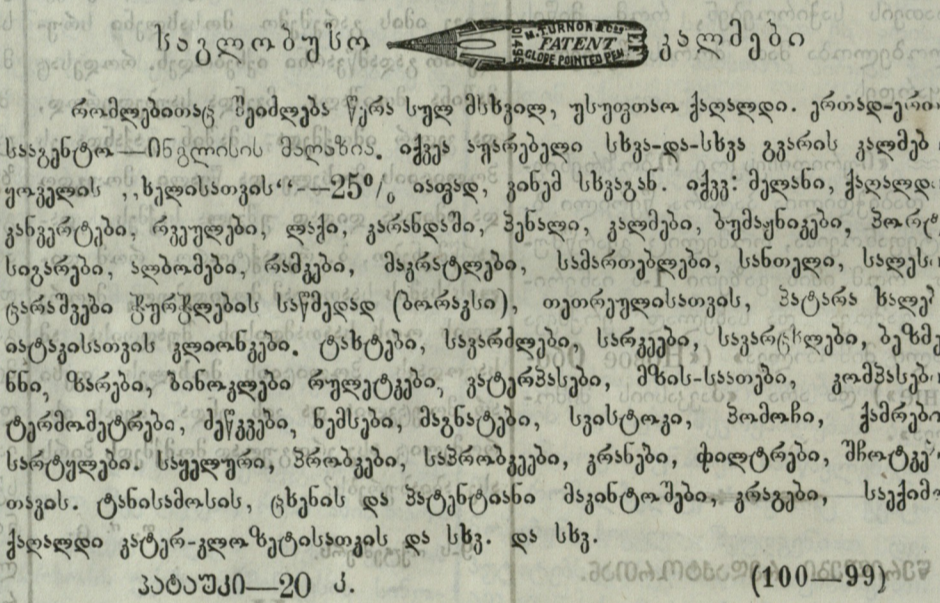 საგლობუსო M. TURNOR & Co's PATENT GLOBE POINTED PEN კალმები
რომლებითაც შეიძლება წერა სულ მსხვილ, უსუფთაო ქაღალდი. ერთად-ერთი
სააგენტო—ინგლისის მაღაზია. იქვეა აუარებელი სხვა-და-სხვა გვარის კალმებ
ყოველის „ხელისათვის“—25% იაფად, ვინემ სხვაგან. იქვე: მელანი, ქაღალდ
კანვერტები, რვეულები, ლაქი, კარანდაში, პენალი, კალმები, ბუმაჟნიკები, პორტ
სიგარები, ალბომები, რამკები, მაკრატლები, სამართებლები, სანთელი, სალეს
ცარაშვები ჭურჭლების საწმედად (ბორაკსი), თეთრეულისათვის, პატარა ხალებ
იატაკისათვის კლიონკები. ტახტები, სავარძლები, სარკეები, სავარცხლები, ბეზმე
ნნი, ზარები, ბინოკლები რულეტკები, ვატერპასები, მზის-საათები, კომპასები
ტერმომეტრები, მეწკვები, ნემსები, მაგნატები, სვისტოკი, პომოჩი, ქამრები
სარტყლები. საყელური, პრობკები, საპრობკეები, კრანები, ფილტრები, შჩოტკე
თავის. ტანისამოსის, ცხენის და პატენტიანი მაკინტოშები, კრაგები, საექიმო
ქაღალდი ვატერ-კლოზეტისათვის და სხვ. და სხვ.
პატაუკი—20 კ. (100—99)